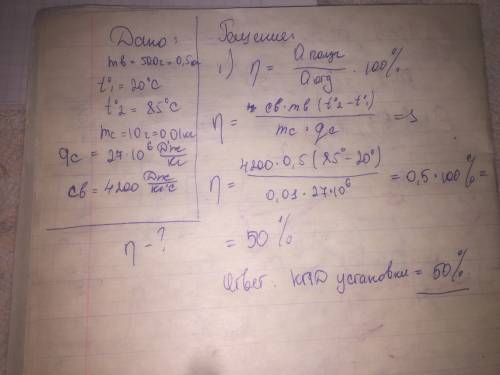 Дано:
mв = 500г = 0,5кг
t°1 = 20°C
t°2 = 85°C
mс = 10г = 0,01кг
qс = 27·10⁶ Дж/кг
cв = 4200 Дж/кг°C
η - ?
Решение:
1) η = Qполуч/Qотд · 100%
η = cв·mв(t°2 - t°1)/mс·qс =>
η = 4200·0,5(85° - 20°)/0,01·27·10⁶ = 0,5·100% =
= 50%
Ответ. КПД установки = 50%